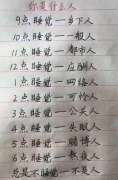 你是什么人
9点睡觉一乡下人
10点睡觉一一般人
11点睡觉一都市人
12点睡觉一应酬人
1点睡觉一网络人
2点睡觉一可怜人
3点睡觉一公关人
4点睡觉一失眠人
5点睡觉一赌博人
6点睡觉一熬夜人
总是不睡觉一不是人